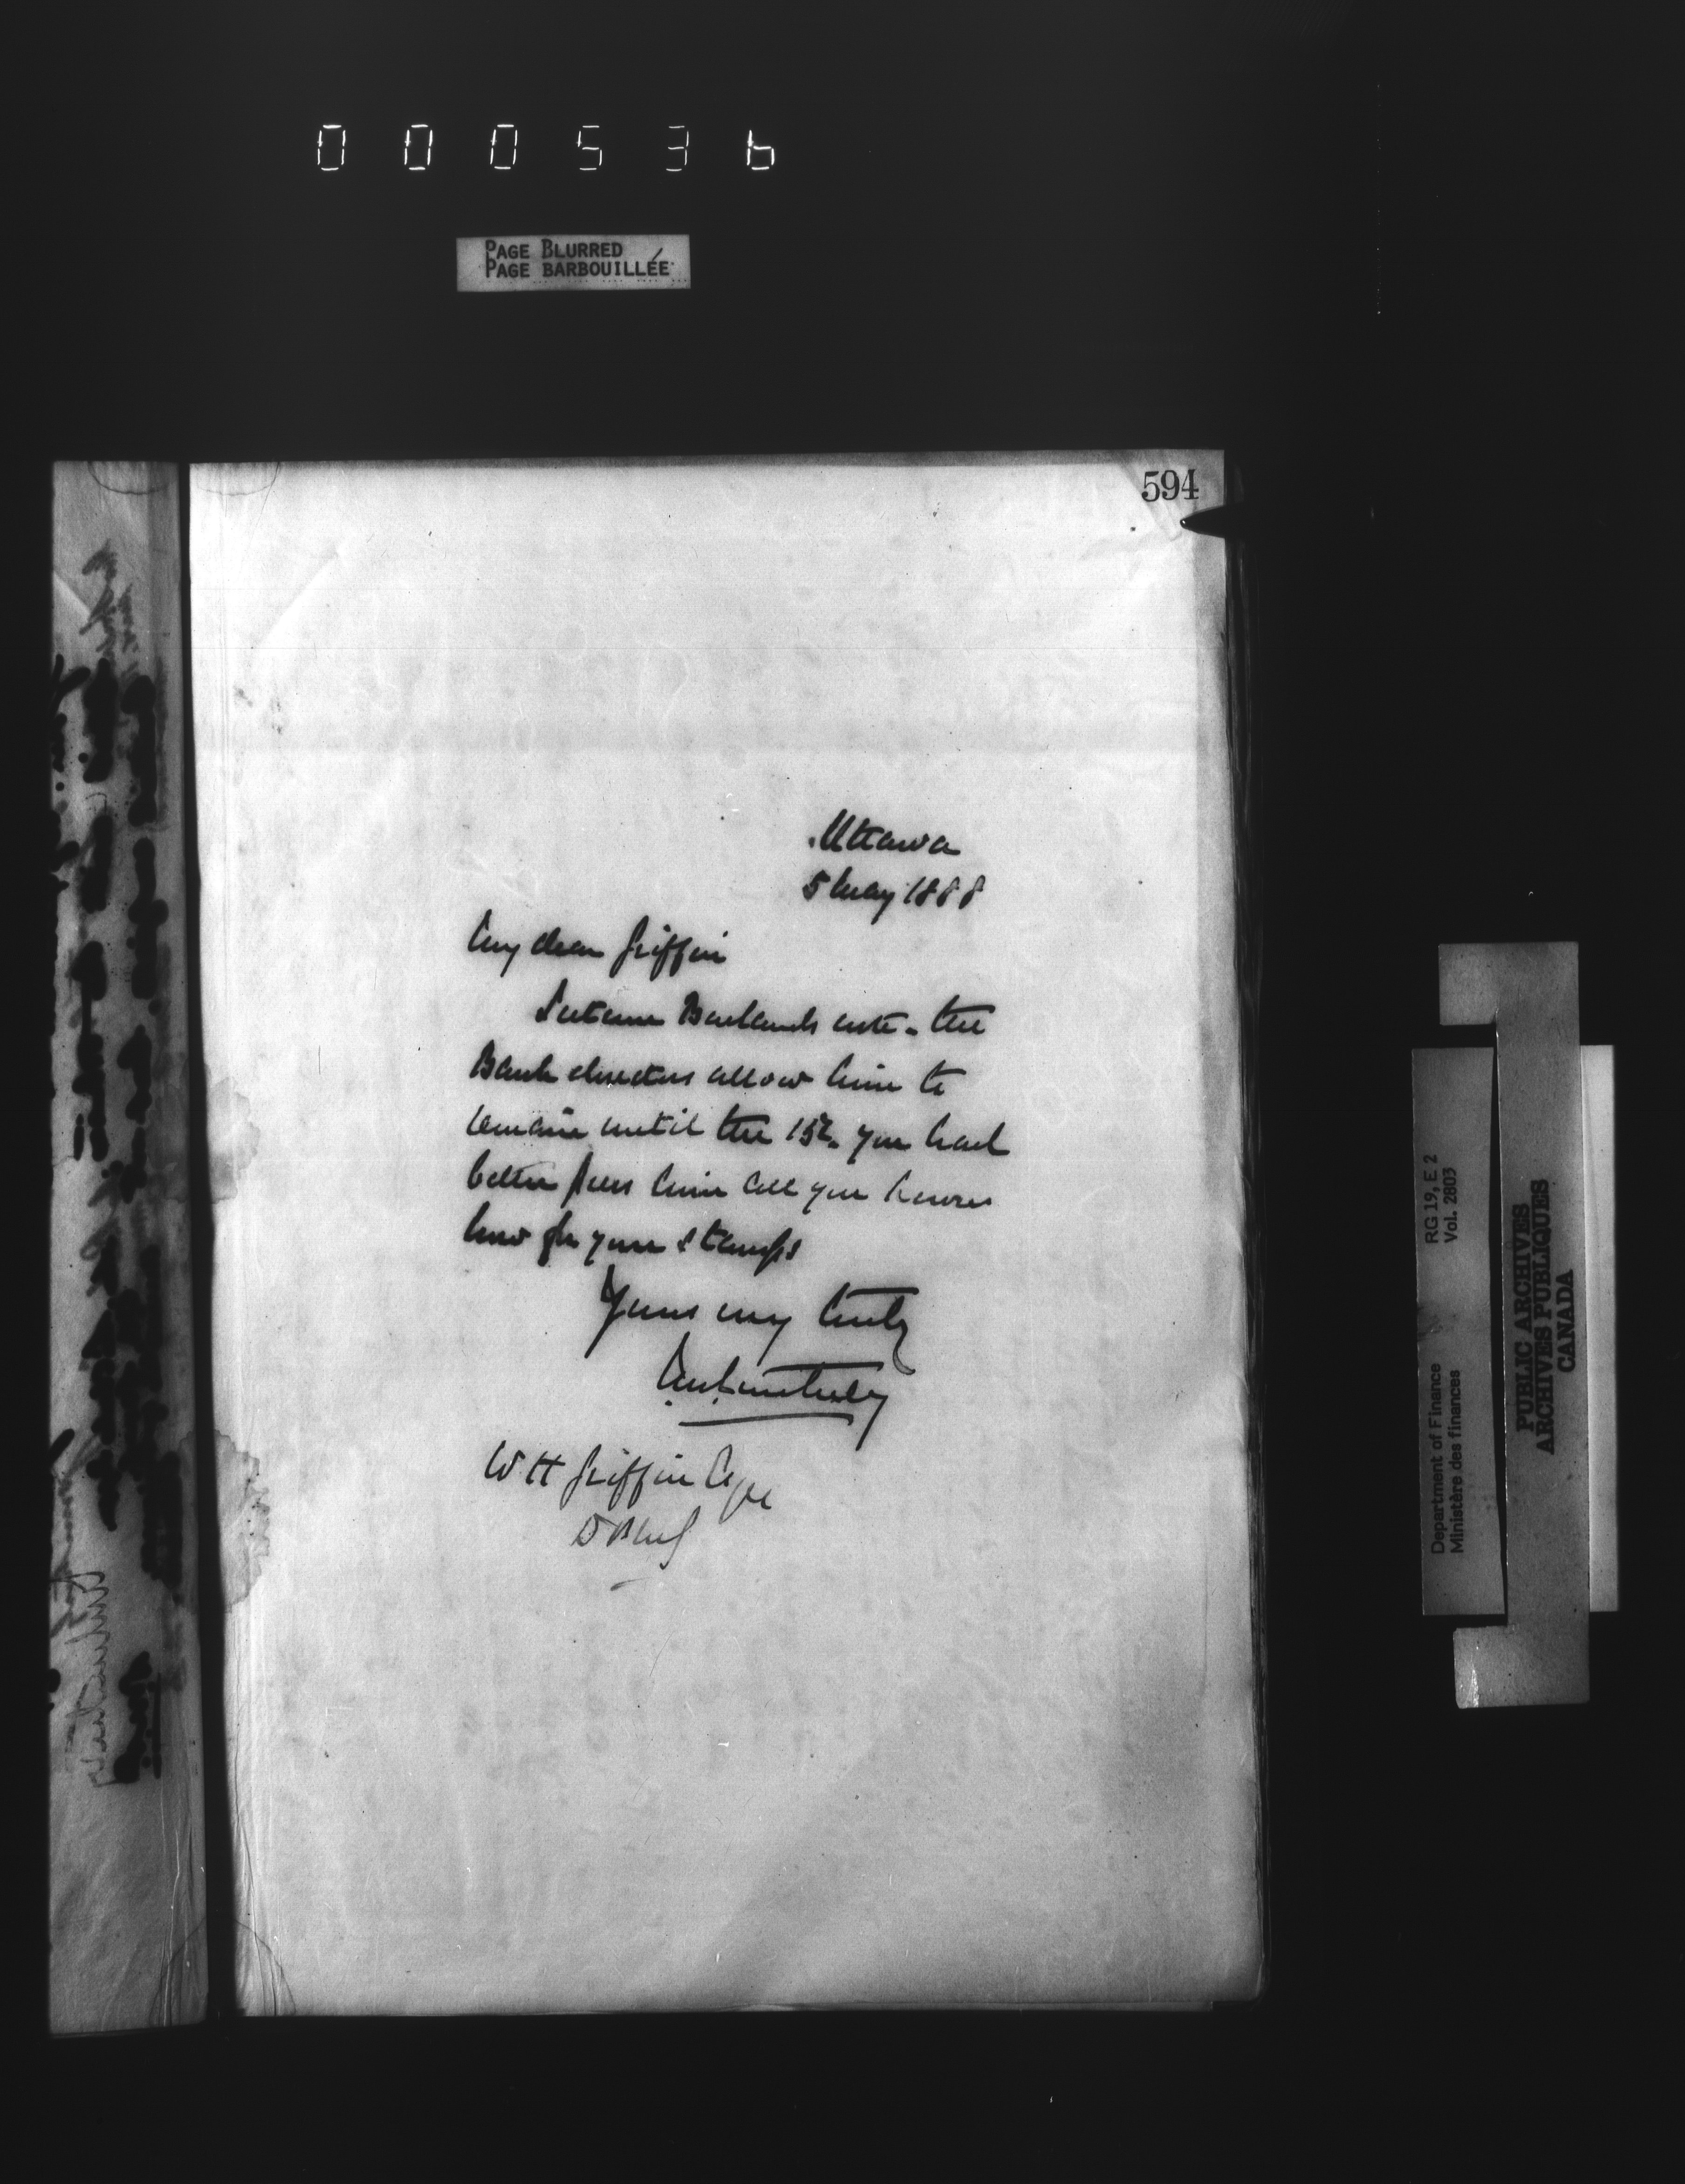 000536
PAGE BLURRED
PAGE BARBOUILLÉE
594
Ottawa
5 May 1888
My dear Griffin
I return Burland's note - the
Bank directors allow him to
remain until the 15th. You had
better press him all you know
how for your stamps
Yours very truly
J M Courtney
W H Griffin Esqre
D P M G
RG 19, E 2
Vol. 2803
Department of Finance
Ministère des finances
PUBLIC ARCHIVES
ARCHIVES PUBLIQUES
CANADA